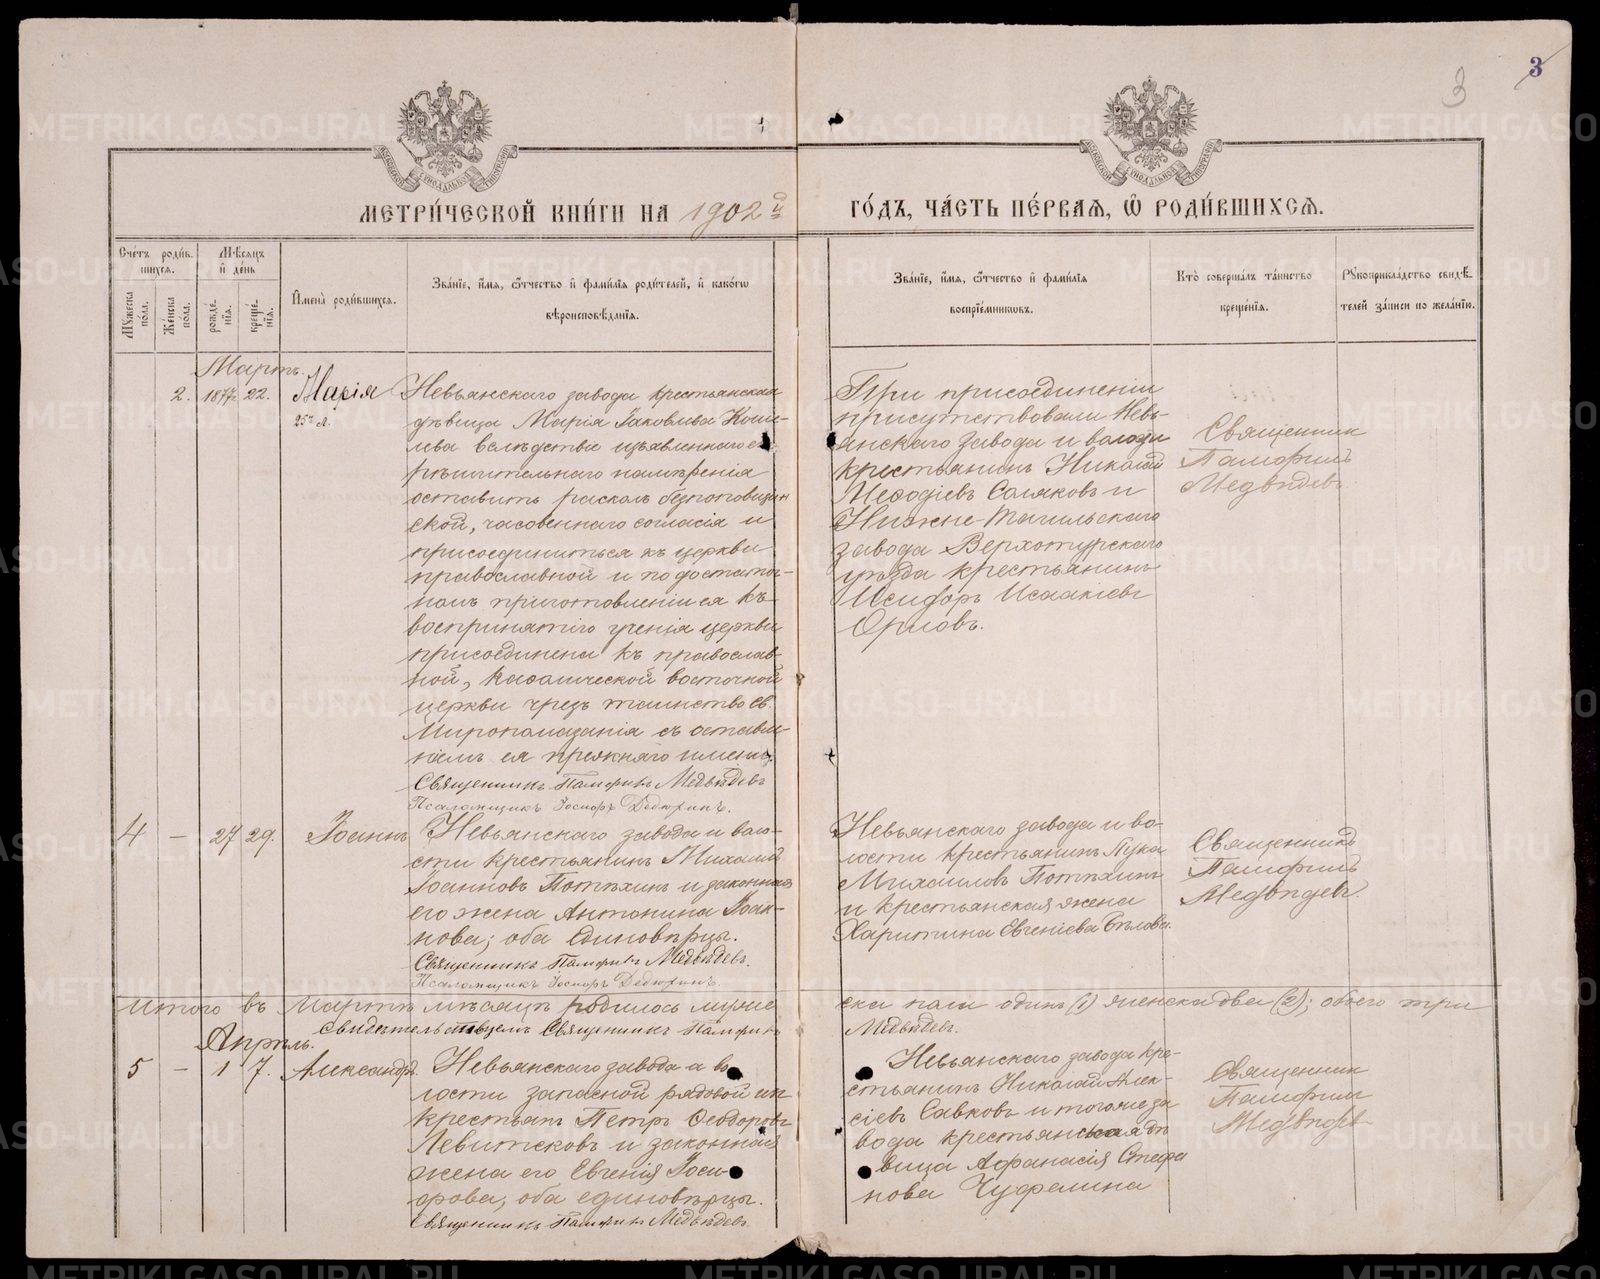 3
3
МЕТРИ́ЧЕСКОЙ КНИ́ГИ НА 1902й
ГО́ДЪ, ЧА́СТЬ ПЕ́РВАѦ, Ѡ҆ РОДИ́ВШИХСѦ.
Сче́тъ роди́в-
шихсѧ.
Мꙋ́жеска по́ла.
Же́нска по́ла.
Мѣ́сѧцъ
и҆ де́нь
рожде́-
нїѧ.
креще́-
нїѧ.
И҆мена̀ роди́вшихсѧ.
Зва́нїе, и҆́мѧ, ѻ҆́тчество и҆ фами́лїѧ роди́телей, и҆ како́гѡ
вѣроисповѣ́данїѧ.
Зва́нїе, и҆́мѧ, ѻ҆́тчество и҆ фами́лїѧ
воспрїе́мниковъ.
Кто̀ соверша́лъ та́инство
креще́нїѧ.
Рꙋкоприкла́дство свидѣ́-
телей за́писи по жела́нїю.
Мартъ.
2. 1877. 22. Марія
25ти л.
Невьянскаго завода крестьянская
дѣвица Марія Іаковлева
лва вслѣдствіе изъявленнаго ею
рѣшительнаго намѣренія
оставить расколъ безпоповщин
ской, часовеннаго согласія и
присоединиться къ церкви
православной и по достаточ-
номъ приготовленіи ея къ
воспринятію ученія церкви
присоединена къ православ-
ной, каѳолической восточной
церкви чрезъ таинство св.
Миропомазанія съ оставле-
ніемъ ея прежняго имени.
Священникъ Памфилъ Медвѣдевъ
Псаломщикъ Іосифъ Дедюхинъ.
При присоединеніи
присутствовали Невь-
янскаго завода и волости
крестьянинъ Николай
Меѳодіевъ Соляковъ и
Нижне-Тагильскаго
завода Верхотурскаго
уѣзда крестьянинъ
Исидоръ Исаакіевъ
Орловъ.
Священникъ
Памфилъ
Медвѣдевъ.
4 — 27 29. Іоаннъ
Невьянскаго завода и воло-
сти крестьянинъ Михаилъ
Іоанновъ Потѣхинъ и законная
его жена Антонина Іоан-
нова; оба единовѣрцы.
Священникъ Памфилъ Медвѣдевъ.
Псаломщикъ Іосифъ Дедюхинъ.
Невьянскаго завода и во-
лости крестьянинъ Лука
Михаиловъ Потѣхинъ
и крестьянская жена
Харитина Евгеніева Бѣлова.
Священникъ
Памфилъ
Медвѣдевъ.
Итого въ Мартѣ мѣсяцѣ родилось муже
ска пола одинъ (1) женска два (2); обоего три
Свидѣтельствуемъ Священникъ Памфилъ
Медвѣдевъ.
Апрѣль.
5 — 1 7. Александръ.
Невьянскаго завода и во
лости запасной рядовой из
крестьянъ Петръ Ѳеодоровъ
Левитсковъ и законная
жена его Евгенія Іоси-
фова; оба единовѣрцы.
Священникъ Памфилъ Медвѣдевъ.
Невьянскаго завода кре-
стьянинъ Николай Алек-
сіевъ Савковъ и тогоже за
вода крестьянская дѣ
вица Аѳанасія Стефа
нова Чуфелина
Священникъ
Памфилъ
Медвѣдевъ
METRIKI.GASO-URAL.RU